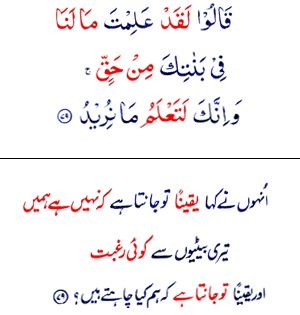 قَالُوْا لَقَدْ عَلِمْتَ مَا لَنَا
فِىْ بَنٰتِكَ مِنْ حَقٍّ ۚ
وَ اِنَّكَ لَتَعْلَمُ مَا نُرِيْدُ ﴿۷۹﴾
اُنہوں نے کہا یقینًا تو جانتا ہے کہ نہیں ہے ہمیں
تیری بیٹیوں سے کوئی رغبت
اور یقینًا تو جانتا ہے کہ ہم کیا چاہتے ہیں؟ ﴿۷۹﴾